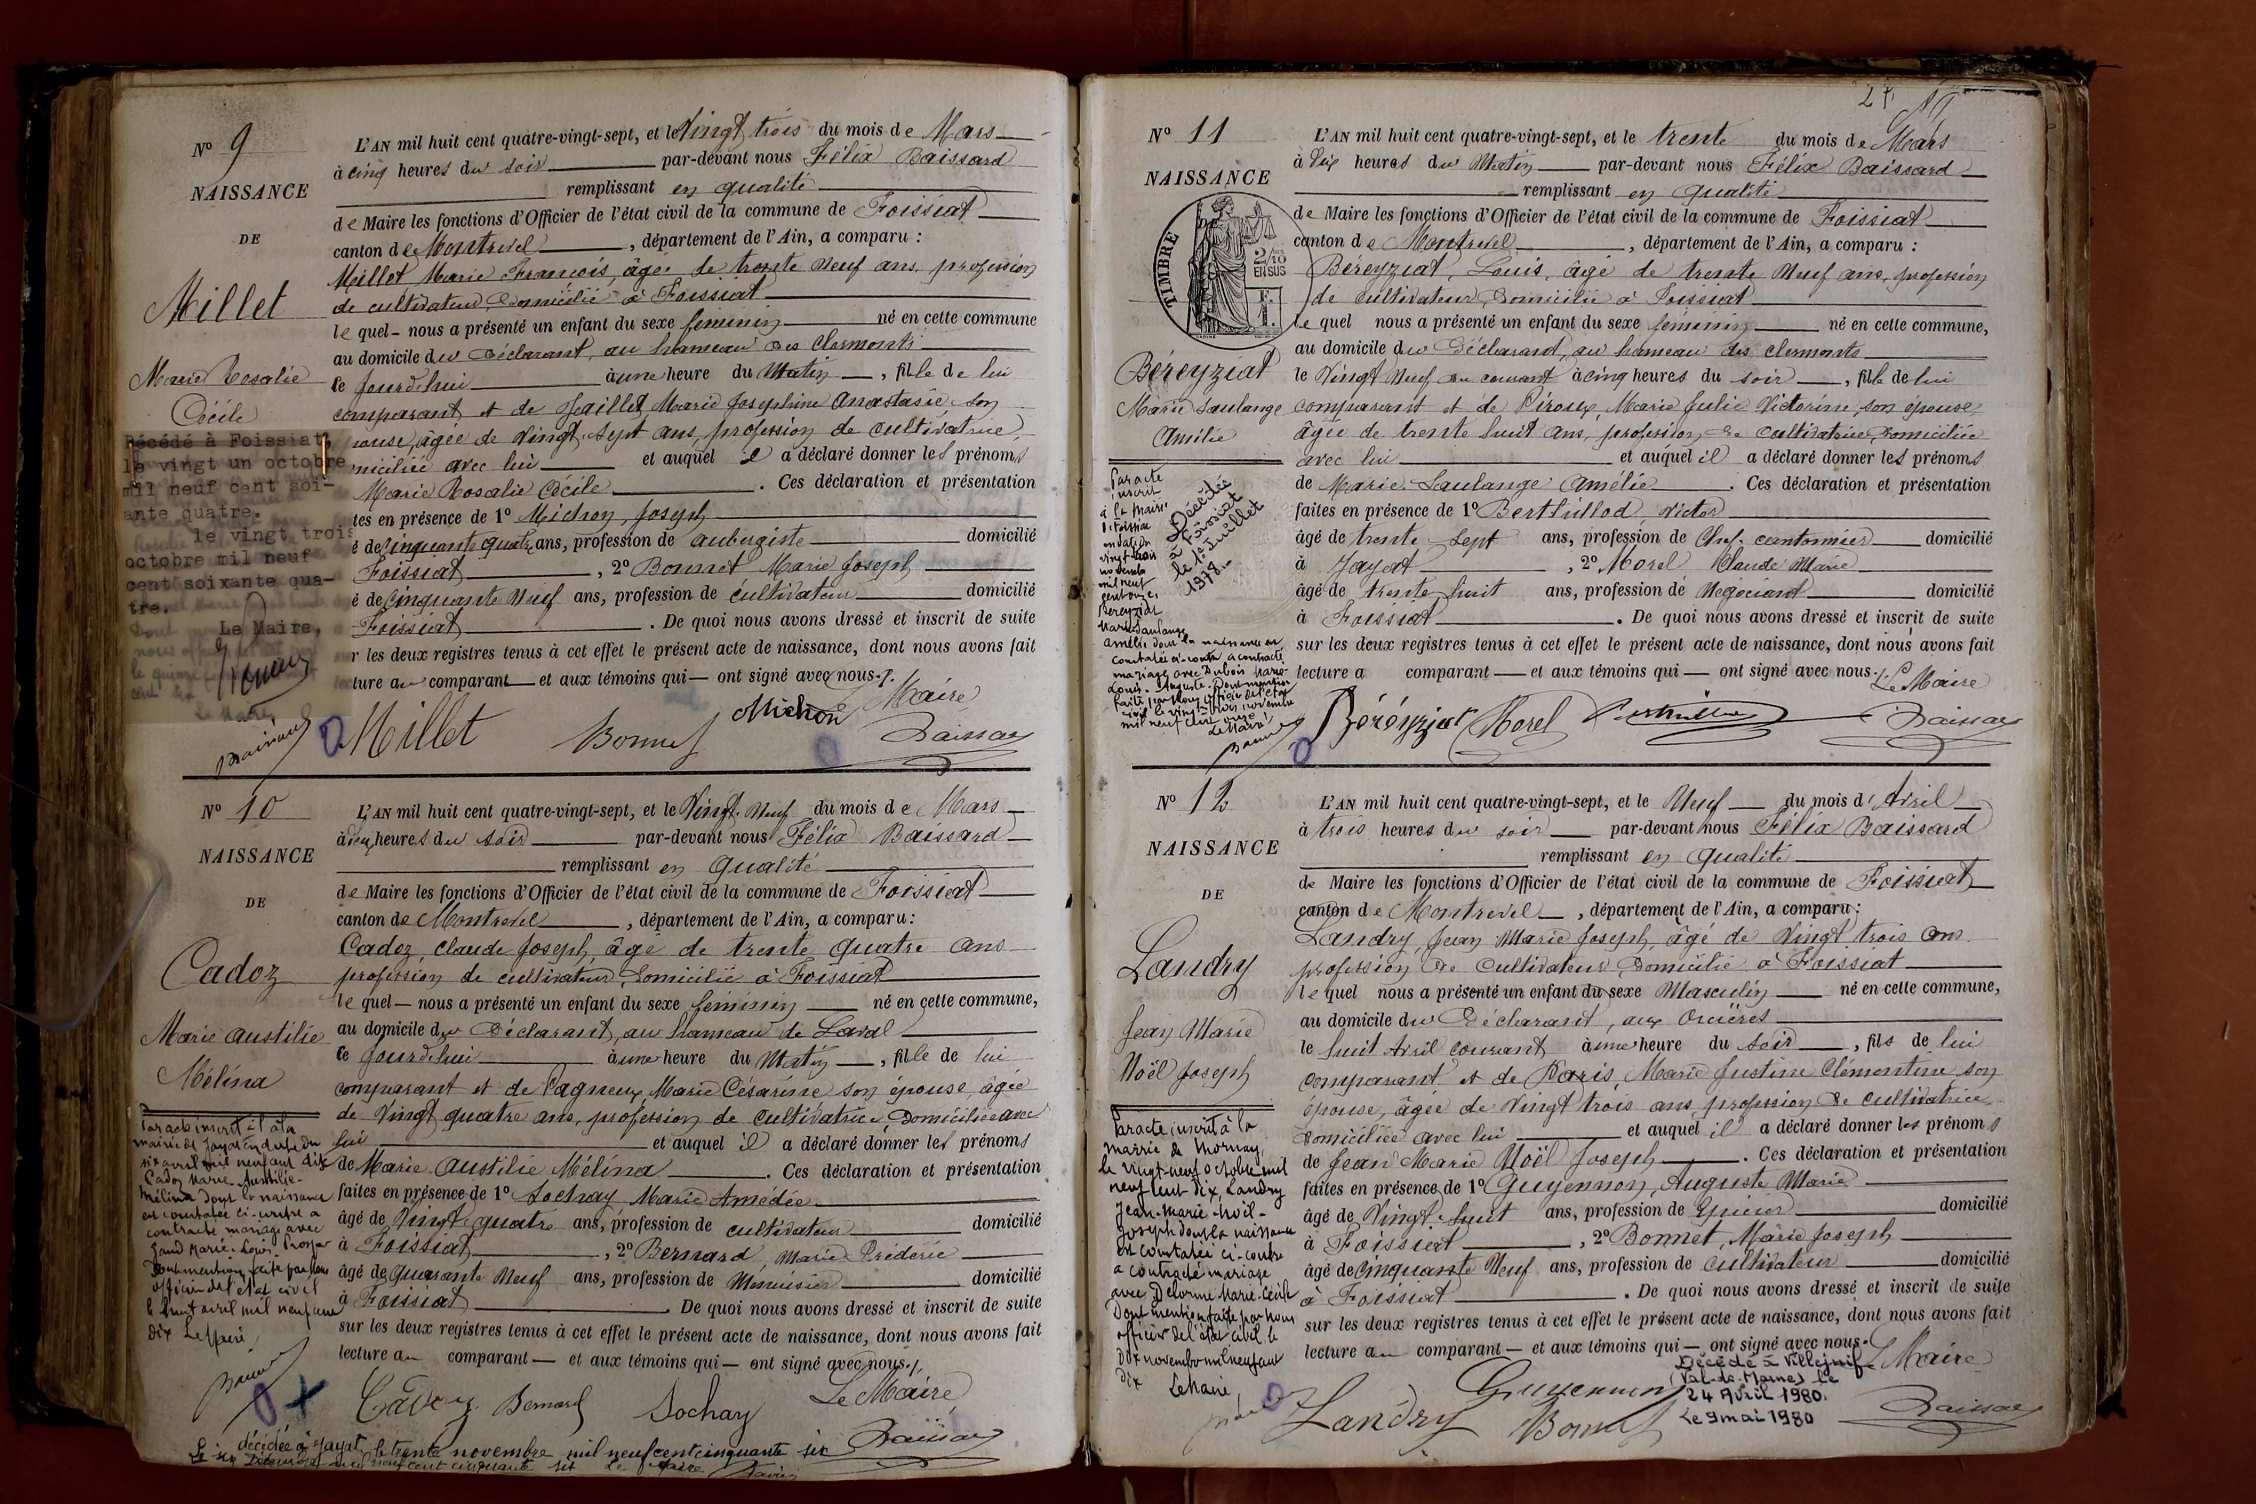 Nº 9
NAISSANCE
DE
Millet
Marie Rosalie
Cécile
Décédé à Foissiat,
le vingt un octobre
mil neuf cent soi-
ante quatre.
le vingt trois
octobre mil neuf
cent soixante qua-
tre.
Le Maire,
L'AN mil huit cent quatre-vingt-sept, et le Vingt trois du mois de Mars
à cinq heures du soir par-devant nous Félix Baissard
remplissant en qualité
de Maire les fonctions d'Officier de l'état civil de la commune de Foissiat
canton de Montrevel, département de l'Ain, a comparu :
Millet Marie François, âgé de trente Neuf ans, profession
de cultivateur, domicilié à Foissiat
le quel nous a présenté un enfant du sexe féminin né en cette commune
au domicile du déclarant, au hameau des Clermonts
le jourd'hui à une heure du Matin, fille de lui
comparant et de Jaillet, Marie Joséphine Anastasie son
ouse, âgée de Vingt-Sept ans, profession de cultivatrice,
miciliée avec lui et auquel il a déclaré donner les prénoms
Marie Rosalie Cécile. Ces déclaration et présentation
tes en présence de 1º Michon, Joseph
é de Cinquante quatre ans, profession de aubergiste domicilié
Foissiat, 2º Bonnet Marie Joseph
é de Cinquante Neuf ans, profession de cultivateur domicilié
Foissiat. De quoi nous avons dressé et inscrit de suite
r les deux registres tenus à cet effet le présent acte de naissance, dont nous avons fait
ture au comparant et aux témoins qui ont signé avec nous.
Le Maire
Millet Bonnet Michon Baissard
Nº 10
NAISSANCE
DE
Cadoz
Marie Austilie
Mélina
Par acte inscrit à la
mairie de Jayat en date du
six avril mil neuf cent dix
Cadoz Marie-Austilie-
Mélina dont la naissance
est constatée ci-contre a
contracté mariage avec
Marie-Louis-Prosper
Dont mention faite par nous
officier de l'état civil
le huit avril mil neuf cent
dix Le Maire,
L'AN mil huit cent quatre-vingt-sept, et le Vingt-Neuf du mois de Mars
à deux heures du soir par-devant nous Félix Baissard
remplissant en qualité
de Maire les fonctions d'Officier de l'état civil de la commune de Foissiat
canton de Montrevel, département de l'Ain, a comparu :
Cadoz, Claude Joseph, âgé de trente quatre ans
profession de cultivateur, domicilié à Foissiat
le quel nous a présenté un enfant du sexe féminin né en cette commune,
au domicile du Déclarant, au hameau de Laval
le jourd'hui à une heure du Matin, fille de lui
comparant et de Pagneux, Marie Césarine son épouse, âgée
de Vingt quatre ans, profession de cultivatrice, domiciliée avec
lui et auquel il a déclaré donner les prénoms
de Marie Austilie Mélina. Ces déclaration et présentation
faites en présence de 1º Sochay Marie Amédée
âgé de Vingt quatre ans, profession de cultivateur domicilié
à Foissiat, 2º Bernard, Marie Fréderic
âgé de quarante Neuf ans, profession de Menuisier domicilié
à Foissiat. De quoi nous avons dressé et inscrit de suite
sur les deux registres tenus à cet effet le présent acte de naissance, dont nous avons fait
lecture au comparant et aux témoins qui ont signé avec nous.
Le Maire
Cadoz Bernard Sochay Baissard
décédée à Jayat, le trente novembre mil neuf cent cinquante six
Le six Décembre mil neuf cent cinquante six Le Maire
Nº 11
NAISSANCE
TIMBRE
2/10
EN SUS
Béreyziat
Marie Saulange
Amélie
Par acte
inscrit
à la mairie
de Foissiat
en date du
vingt-trois
novembre
mil neuf
cent onze
Béreyziat
Marie-Saulange
Amélie dont la naissance est
constatée ci-contre a contracté
mariage avec Dubois Marie-
Louis-Auguste. Dont mention
faite par Nous, officier de l'état
civil le vingt-trois novembre
mil neuf cent onze
Le Maire,
Décédée
à Foissiat
le 1er Juillet
1978.
L'AN mil huit cent quatre-vingt-sept, et le trente du mois de Mars
à Dix heures du Matin par-devant nous Félix Baissard
remplissant en qualité
de Maire les fonctions d'Officier de l'état civil de la commune de Foissiat
canton de Montrevel, département de l'Ain, a comparu :
Béreyziat, Louis, âgé de trente Neuf ans, profession
de cultivateur, domicilié à Foissiat
le quel nous a présenté un enfant du sexe féminin né en cette commune,
au domicile du Déclarant, au hameau des Clermonts
le Vingt Neuf du courant à cinq heures du soir, fille de lui
comparant et de Piroux, Marie Julie Victorine, son épouse,
âgée de trente huit ans, profession de cultivatrice, domiciliée
avec lui et auquel il a déclaré donner les prénoms
de Marie Saulange Amélie. Ces déclaration et présentation
faites en présence de 1º Berthillod, Victor
âgé de trente Sept ans, profession de Chef cantonnier domicilié
à Jayat, 2º Morel Claude Marie
âgé de trente huit ans, profession de Négociant domicilié
à Foissiat. De quoi nous avons dressé et inscrit de suite
sur les deux registres tenus à cet effet le présent acte de naissance, dont nous avons fait
lecture a comparant et aux témoins qui ont signé avec nous.
Le Maire
Béréyziat Morel Baissard
Nº 12
NAISSANCE
DE
Landry
Jean Marie
Noël Joseph
Par acte inscrit à la
mairie de Mornay,
le vingt-neuf octobre mil
neuf cent dix, Landry
Jean-Marie-Noël-
Joseph dont la naissance
est constatée ci-contre
a contracté mariage
avec Delorme Marie-Cécile
Dont mention faite par nous
officier de l'état civil le
dix novembre mil neuf cent
dix Le Maire,
L'AN mil huit cent quatre-vingt-sept, et le Neuf du mois d'Avril
à trois heures du soir par-devant nous Félix Baissard
remplissant en qualité
de Maire les fonctions d'Officier de l'état civil de la commune de Foissiat
canton de Montrevel, département de l'Ain, a comparu :
Landry, Jean Marie Joseph, âgé de Vingt trois ans
profession de Cultivateur, domicilié à Foissiat
le quel nous a présenté un enfant du sexe Masculin né en cette commune,
au domicile du Déclarant, aux Orcières
le huit Avril courant à une heure du soir, fils de lui
comparant et de Paris, Marie Justine Clémentine son
épouse, âgée de Vingt trois ans, profession de cultivatrice
domiciliée avec lui et auquel il a déclaré donner les prénoms
de Jean Marie Noël Joseph. Ces déclaration et présentation
faites en présence de 1º Guyennon, Auguste Marie
âgé de Vingt-huit ans, profession de Epicier domicilié
à Foissiat, 2º Bonnet, Marie Joseph
âgé de cinquante Neuf ans, profession de cultivateur domicilié
à Foissiat. De quoi nous avons dressé et inscrit de suite
sur les deux registres tenus à cet effet le présent acte de naissance, dont nous avons fait
lecture au comparant et aux témoins qui ont signé avec nous.
Le Maire
Décédé à Villejuif
(Val-de-Marne) le
24 Avril 1980.
Le 9 mai 1980
Landry Guyennon Bonnet Baissard